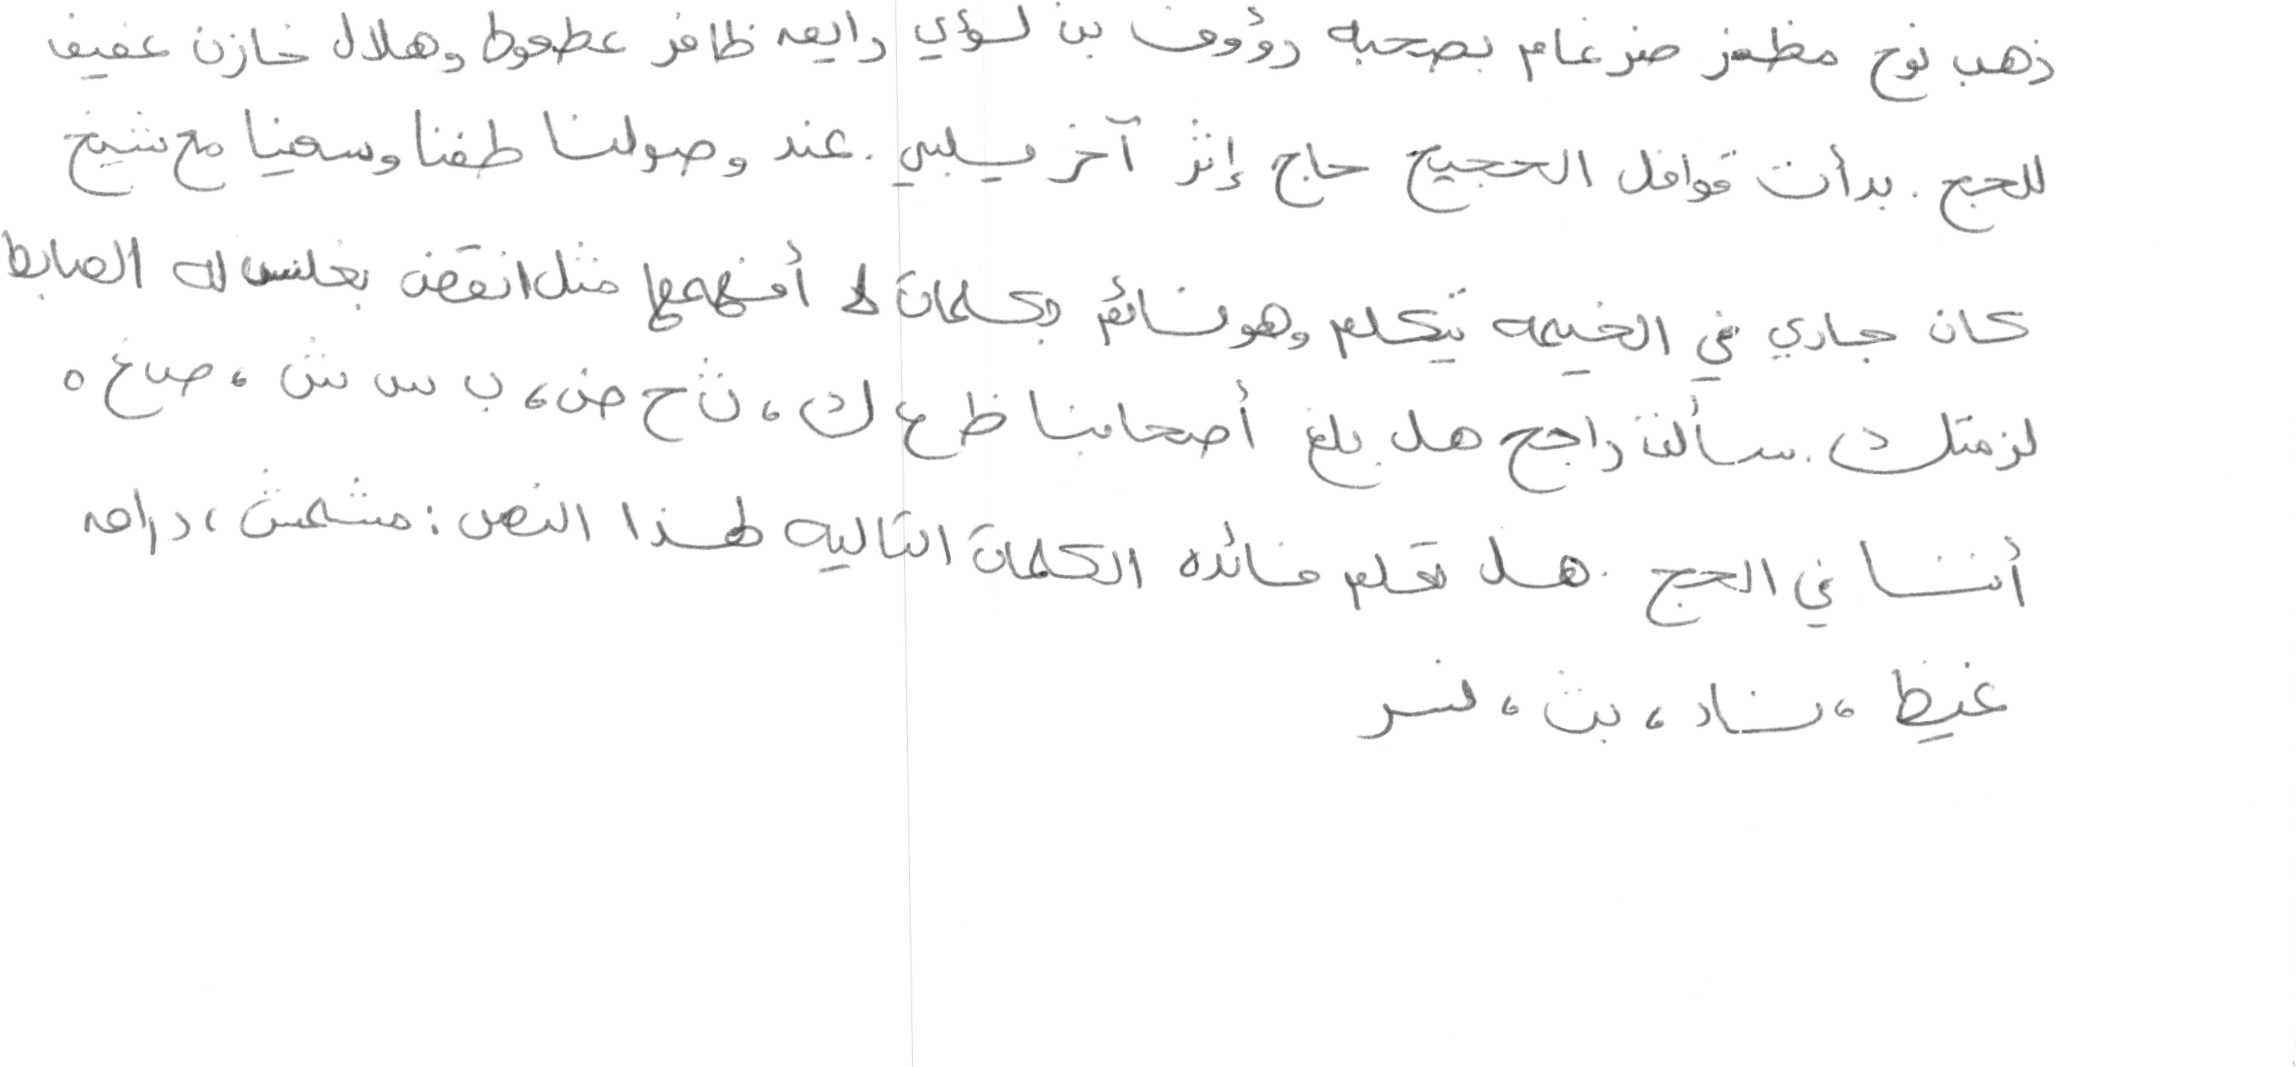 ذهب نوح مظفر ضرغام بصحبه رؤوف بن لؤي رايعه ظافر عطعوط وهلال خازن عفيف
للحج . بدأت قوافل الحجيج حاج إثر آخر يلبي . عند وصولنا طفنا وسعينا مع شيخ
كان جاري في الخيمه يتكلم وهو نائم بكلمات لا أفهمها مثل انقض بغلس له الضابط
لزمتك . سألت راجح هل بلغ أصحابنا ظ ع ك ، ث ح ض ، ب س ش ، ص غ ه
أننا في الحج . هل تعلم فائده الكلمات التاليه لهذا النص : مشمش ، درامه
غيظ ، ناد ، بث ، نسر